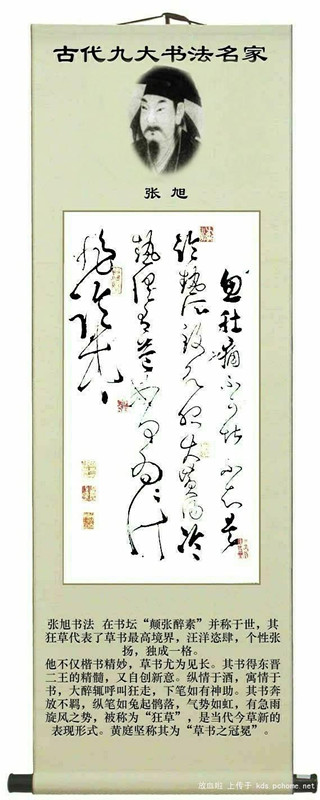 古代九大书法名家
张 旭
忽肚痛不可堪不知是
冷熱所致欲服大黃湯冷
熱俱有益如何為計
张旭书法 在书坛“颠张醉素”并称于世，其
狂草代表了草书最高境界，汪洋恣肆，个性张
扬，独成一格。
他不仅楷书精妙，草书尤为见长。其书得东晋
二王的精髓，又自创新意。纵情于酒，寓情于
书，大醉辄呼叫狂走，下笔如有神助。其书奔
放不羁，纵笔如兔起鹘落，气势如虹，有急雨
旋风之势，被称为“狂草”，是当代今草新的
表现形式。黄庭坚称其为“草书之冠冕”。
上传于 kds.pchome.net